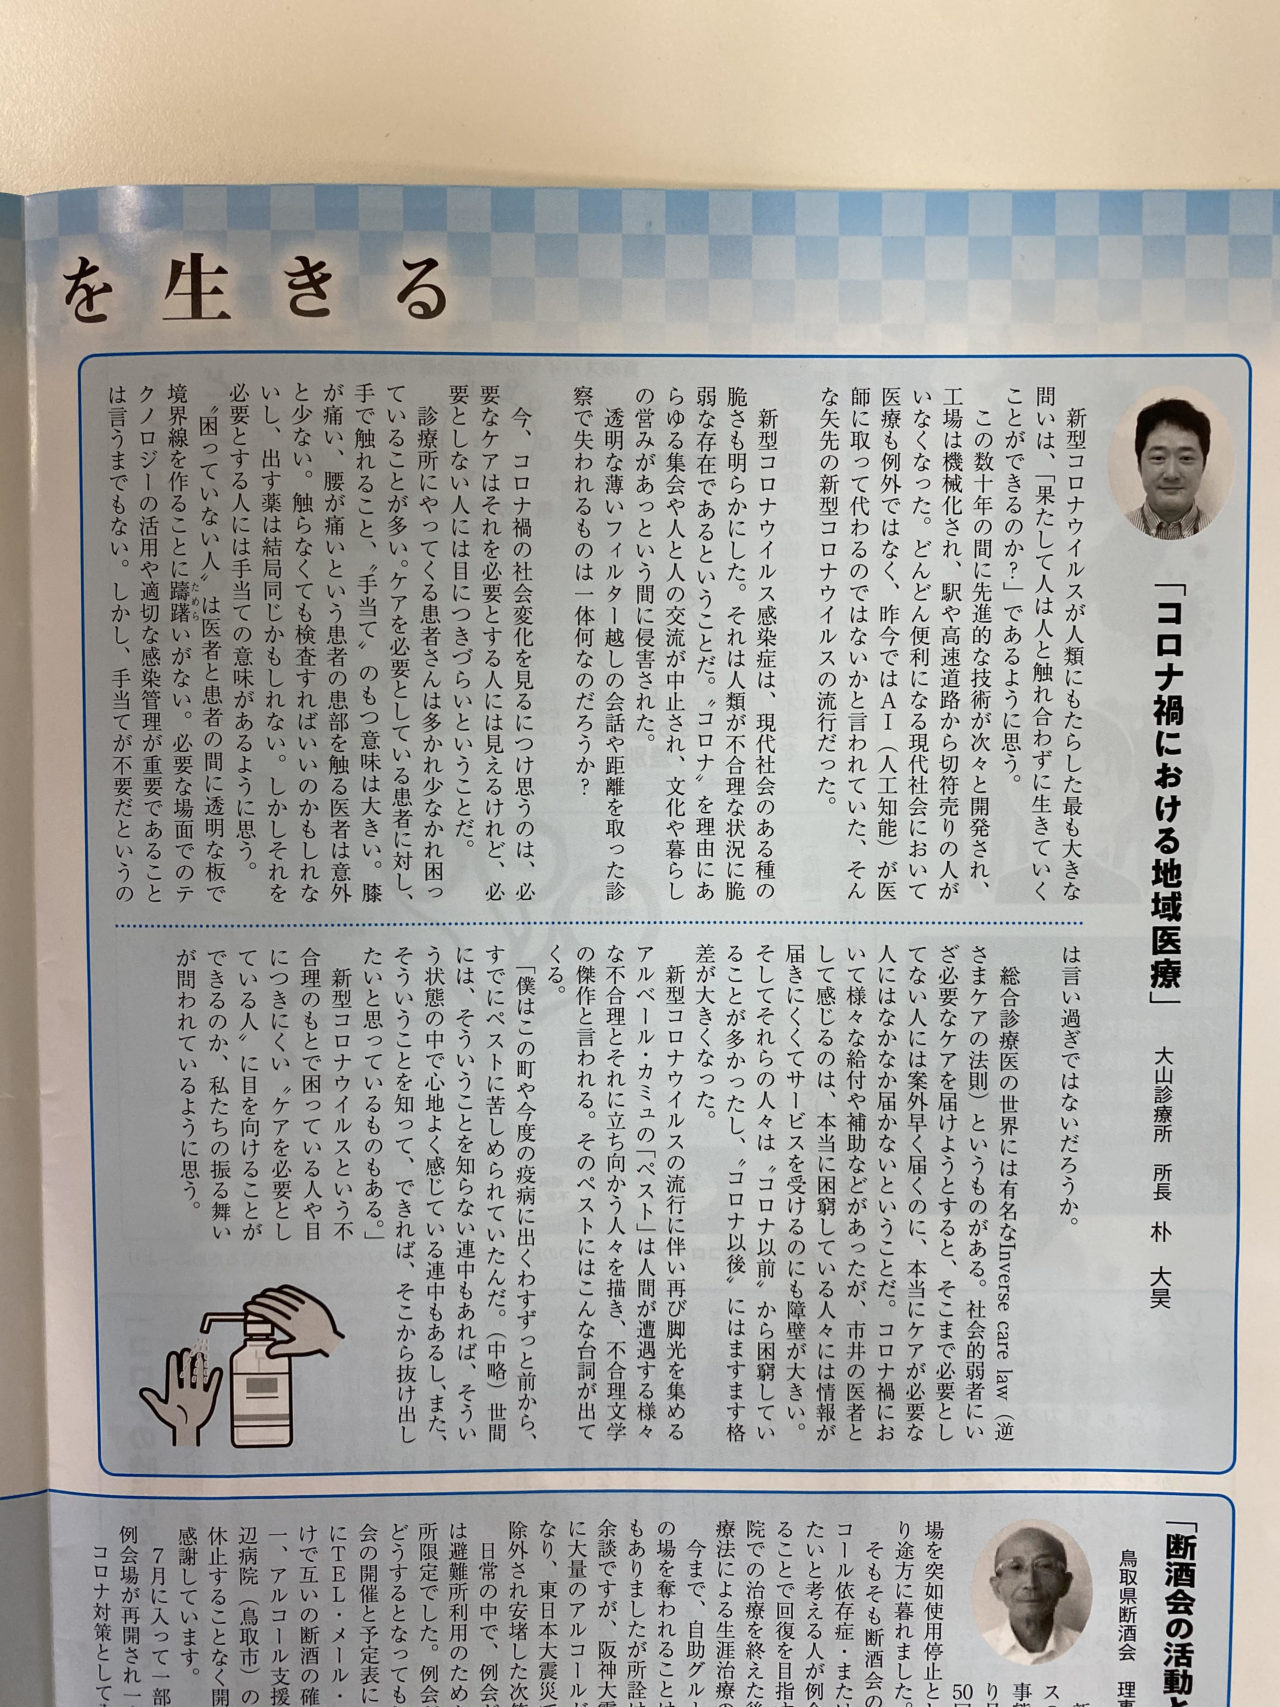 を生きる
「コロナ禍における地域医療」
大山診療所　所長　朴　大昊
新型コロナウイルスが人類にもたらした最も大きな
問いは、「果たして人は人と触れ合わずに生きていく
ことができるのか？」であるように思う。
この数十年の間に先進的な技術が次々と開発され、
工場は機械化され、駅や高速道路から切符売りの人が
いなくなった。どんどん便利になる現代社会において
医療も例外ではなく、昨今ではＡＩ（人工知能）が医
師に取って代わるのではないかと言われていた、そん
な矢先の新型コロナウイルスの流行だった。
新型コロナウイルス感染症は、現代社会のある種の
脆さも明らかにした。それは人類が不合理な状況に脆
弱な存在であるということだ。〝コロナ〟を理由にあ
らゆる集会や人と人の交流が中止され、文化や暮らし
の営みがあっという間に侵害された。
透明な薄いフィルター越しの会話や距離を取った診
察で失われるものは一体何なのだろうか？
今、コロナ禍の社会変化を見るにつけ思うのは、必
要なケアはそれを必要とする人には見えるけれど、必
要としない人には目につきづらいということだ。
診療所にやってくる患者さんは多かれ少なかれ困っ
ていることが多い。ケアを必要としている患者に対し、
手で触れること、〝手当て〟のもつ意味は大きい。膝
が痛い、腰が痛いという患者の患部を触る医者は意外
と少ない。触らなくても検査すればいいのかもしれな
いし、出す薬は結局同じかもしれない。しかしそれを
必要とする人には手当ての意味があるように思う。
〝困っていない人〟は医者と患者の間に透明な板で
境界線を作ることに躊躇いがない。必要な場面でのテ
ためら
クノロジーの活用や適切な感染管理が重要であること
は言うまでもない。しかし、手当てが不要だというの
は言い過ぎではないだろうか。
総合診療医の世界には有名なInverse care law（逆
さまケアの法則）というものがある。社会的弱者にい
ざ必要なケアを届けようとすると、そこまで必要とし
てない人には案外早く届くのに、本当にケアが必要な
人にはなかなか届かないということだ。コロナ禍にお
いて様々な給付や補助などがあったが、市井の医者と
して感じるのは、本当に困窮している人々には情報が
届きにくくてサービスを受けるのにも障壁が大きい。
そしてそれらの人々は〝コロナ以前〟から困窮してい
ることが多かったし、〝コロナ以後〟にはますます格
差が大きくなった。
新型コロナウイルスの流行に伴い再び脚光を集める
アルベール・カミュの「ペスト」は人間が遭遇する様々
な不合理とそれに立ち向かう人々を描き、不合理文学
の傑作と言われる。そのペストにはこんな台詞が出て
くる。
「僕はこの町や今度の疫病に出くわすずっと前から、
すでにペストに苦しめられていたんだ。（中略）世間
には、そういうことを知らない連中もあれば、そうい
う状態の中で心地よく感じている連中もあるし、また、
そういうことを知って、できれば、そこから抜け出し
たいと思っているものもある。」
新型コロナウイルスという不
合理のもとで困っている人や目
につきにくい〝ケアを必要とし
ている人〟に目を向けることが
できるのか、私たちの振る舞い
が問われているように思う。
「断酒会の活動と
鳥取県断酒会　理事
スの
事態
り見
50回
場を突如使用停止とし
り途方に暮れました。
そもそも断酒会の
コール依存症・または
たいと考える人が例会
ることで回復を目指す
院での治療を終えた後
療法による生涯治療の
今まで、自助グル
の場を奪われることは
もありましたが所詮は
余談ですが、阪神大震
に大量のアルコールが
なり、東日本大震災で
除外され安堵した次第
日常の中で、例会が
は避難所利用のため
所限定でした。例会
どうするとなっても
会の開催と予定表に
にＴＥＬ・メール・
けで互いの断酒の確
一、アルコール支援
辺病院（鳥取市）の
休止することなく開
感謝しています。
７月に入って一部
例会場が再開され一
コロナ対策として